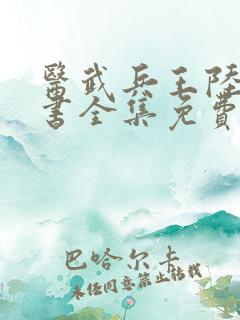 醫武兵王陸
書全集免費
巴哈尔卡
未经同意禁止转载